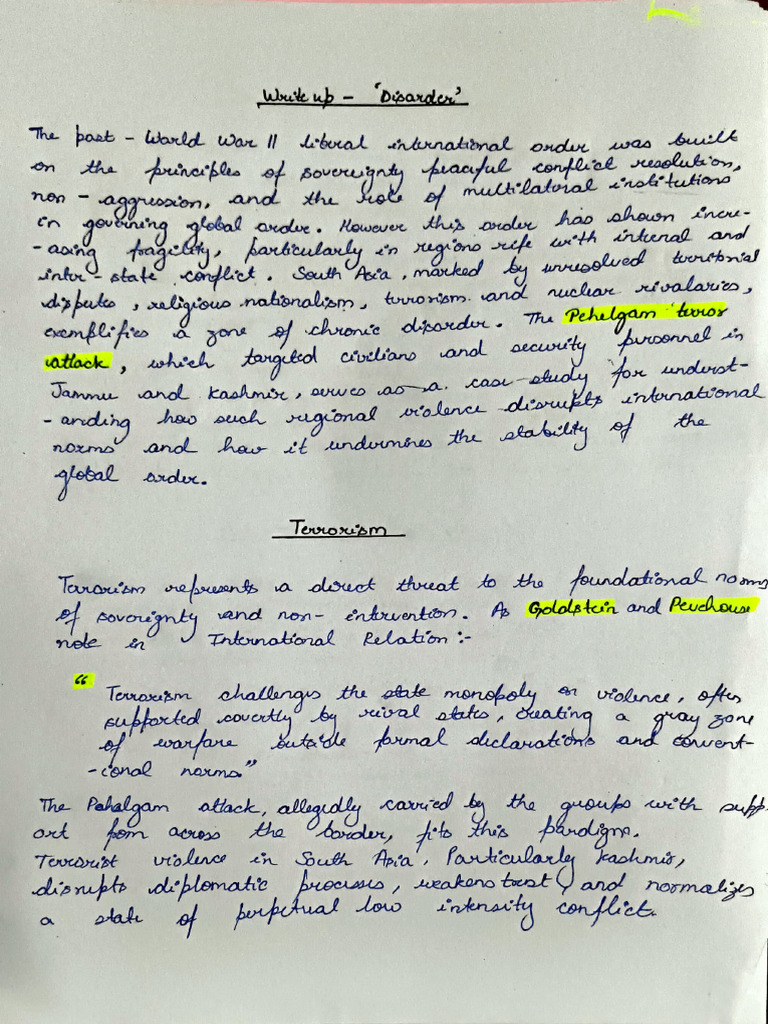 Write up - 'Disorder'
The post - World War II liberal international order was built
on the principles of sovereignty peaceful conflict resolution,
non - aggression, and the role of multilateral institutions
in governing global order. However this order has shown incre-
-asing fragility, particularly in regions rife with internal and
inter-state conflict. South Asia, marked by unresolved territorial
disputes, religious nationalism, terrorism and nuclear rivalaries,
exemplifies a zone of chronic disorder. The Pehelgam terror
attack, which targeted civilians and security personnel in
Jammu and Kashmir, serves as a case-study for underst-
-anding how such regional violence disrupts international
norms and how it undermines the stability of the
global order.
Terrorism
Terrorism represents a direct threat to the foundational norms
of sovereignty and non- intervention. As Goldstein and Pevehouse
note in International Relation:-
" Terrorism challenges the state monopoly on violence, often
supported covertly by rival states, creating a gray zone
of warfare outside formal declarations and convent-
-ional norms"
The Pahalgam attack, allegedly carried by the groups with supp-
ort from across the border, fits this pardigm.
Terrorist violence in South Asia, Particularly Kashmir,
disrupts diplomatic processes, weakens trust, and normalizes
a state of perpetual low intensity conflict.